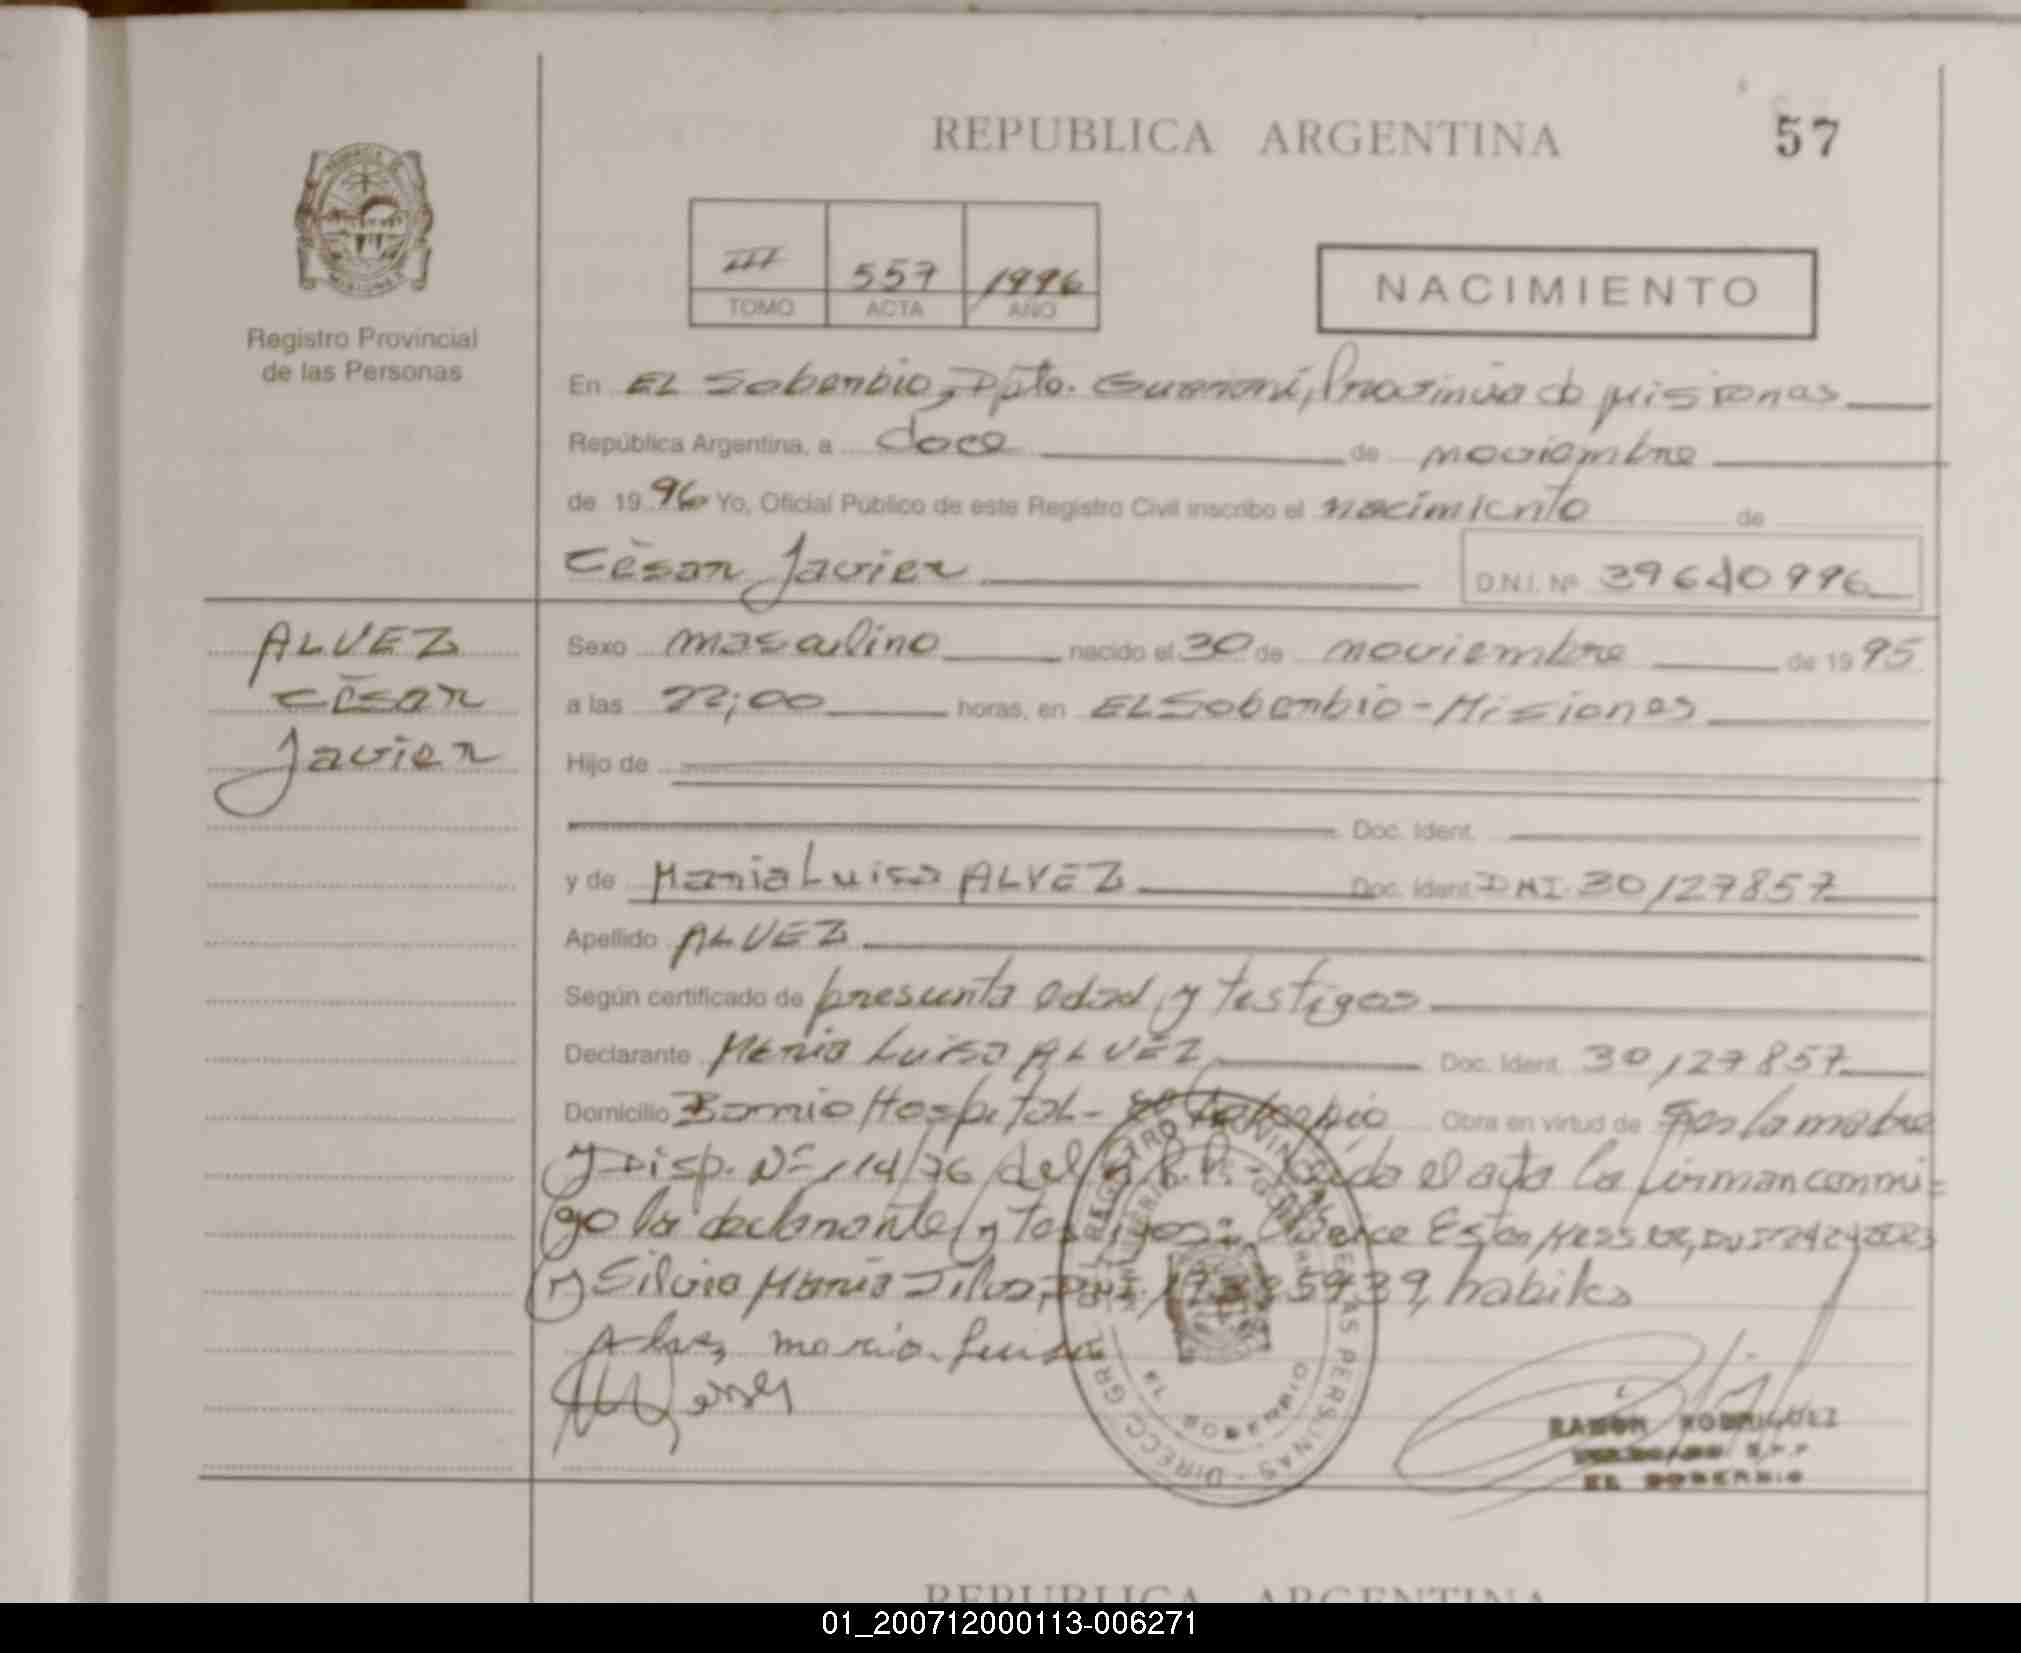 REPUBLICA ARGENTINA
57
III 557 1996
TOMO ACTA AÑO
NACIMIENTO
Registro Provincial
de las Personas
En EL Soberbio, Dpto. Guaraní, Provincia de Misiones
República Argentina, a doce de noviembre
de 1996 Yo, Oficial Público de este Registro Civil inscribo el nacimiento de
César Javier D.N.I. Nº
ALVEZ
César
Javier
Sexo masculino nacido el 30 de noviembre de 1995
a las 22;00 horas, en EL Soberbio - Misiones
Hijo de
Doc. Ident.
y de Maria Luisa ALVEZ Doc. Ident. DNI. 30,127857
Apellido ALVEZ
Según certificado de presunta edad y testigos
Declarante Maria Luisa ALVEZ Doc. Ident. 30,127857
Domicilio Barrio Hospital - El Soberbio Obra en virtud de Ser la madre
y Disp. Nº 114/76 del R.P.P. - Leída el acta la firman conmi-
go la declarante y testigos: Ester
y) Silvia Maria Silva, DNI habiles
Alvez maria Luisa
RAMON RODRIGUEZ
EL SOBERBIO
REPUBLICA ARGENTINA
01_200712000113-006271